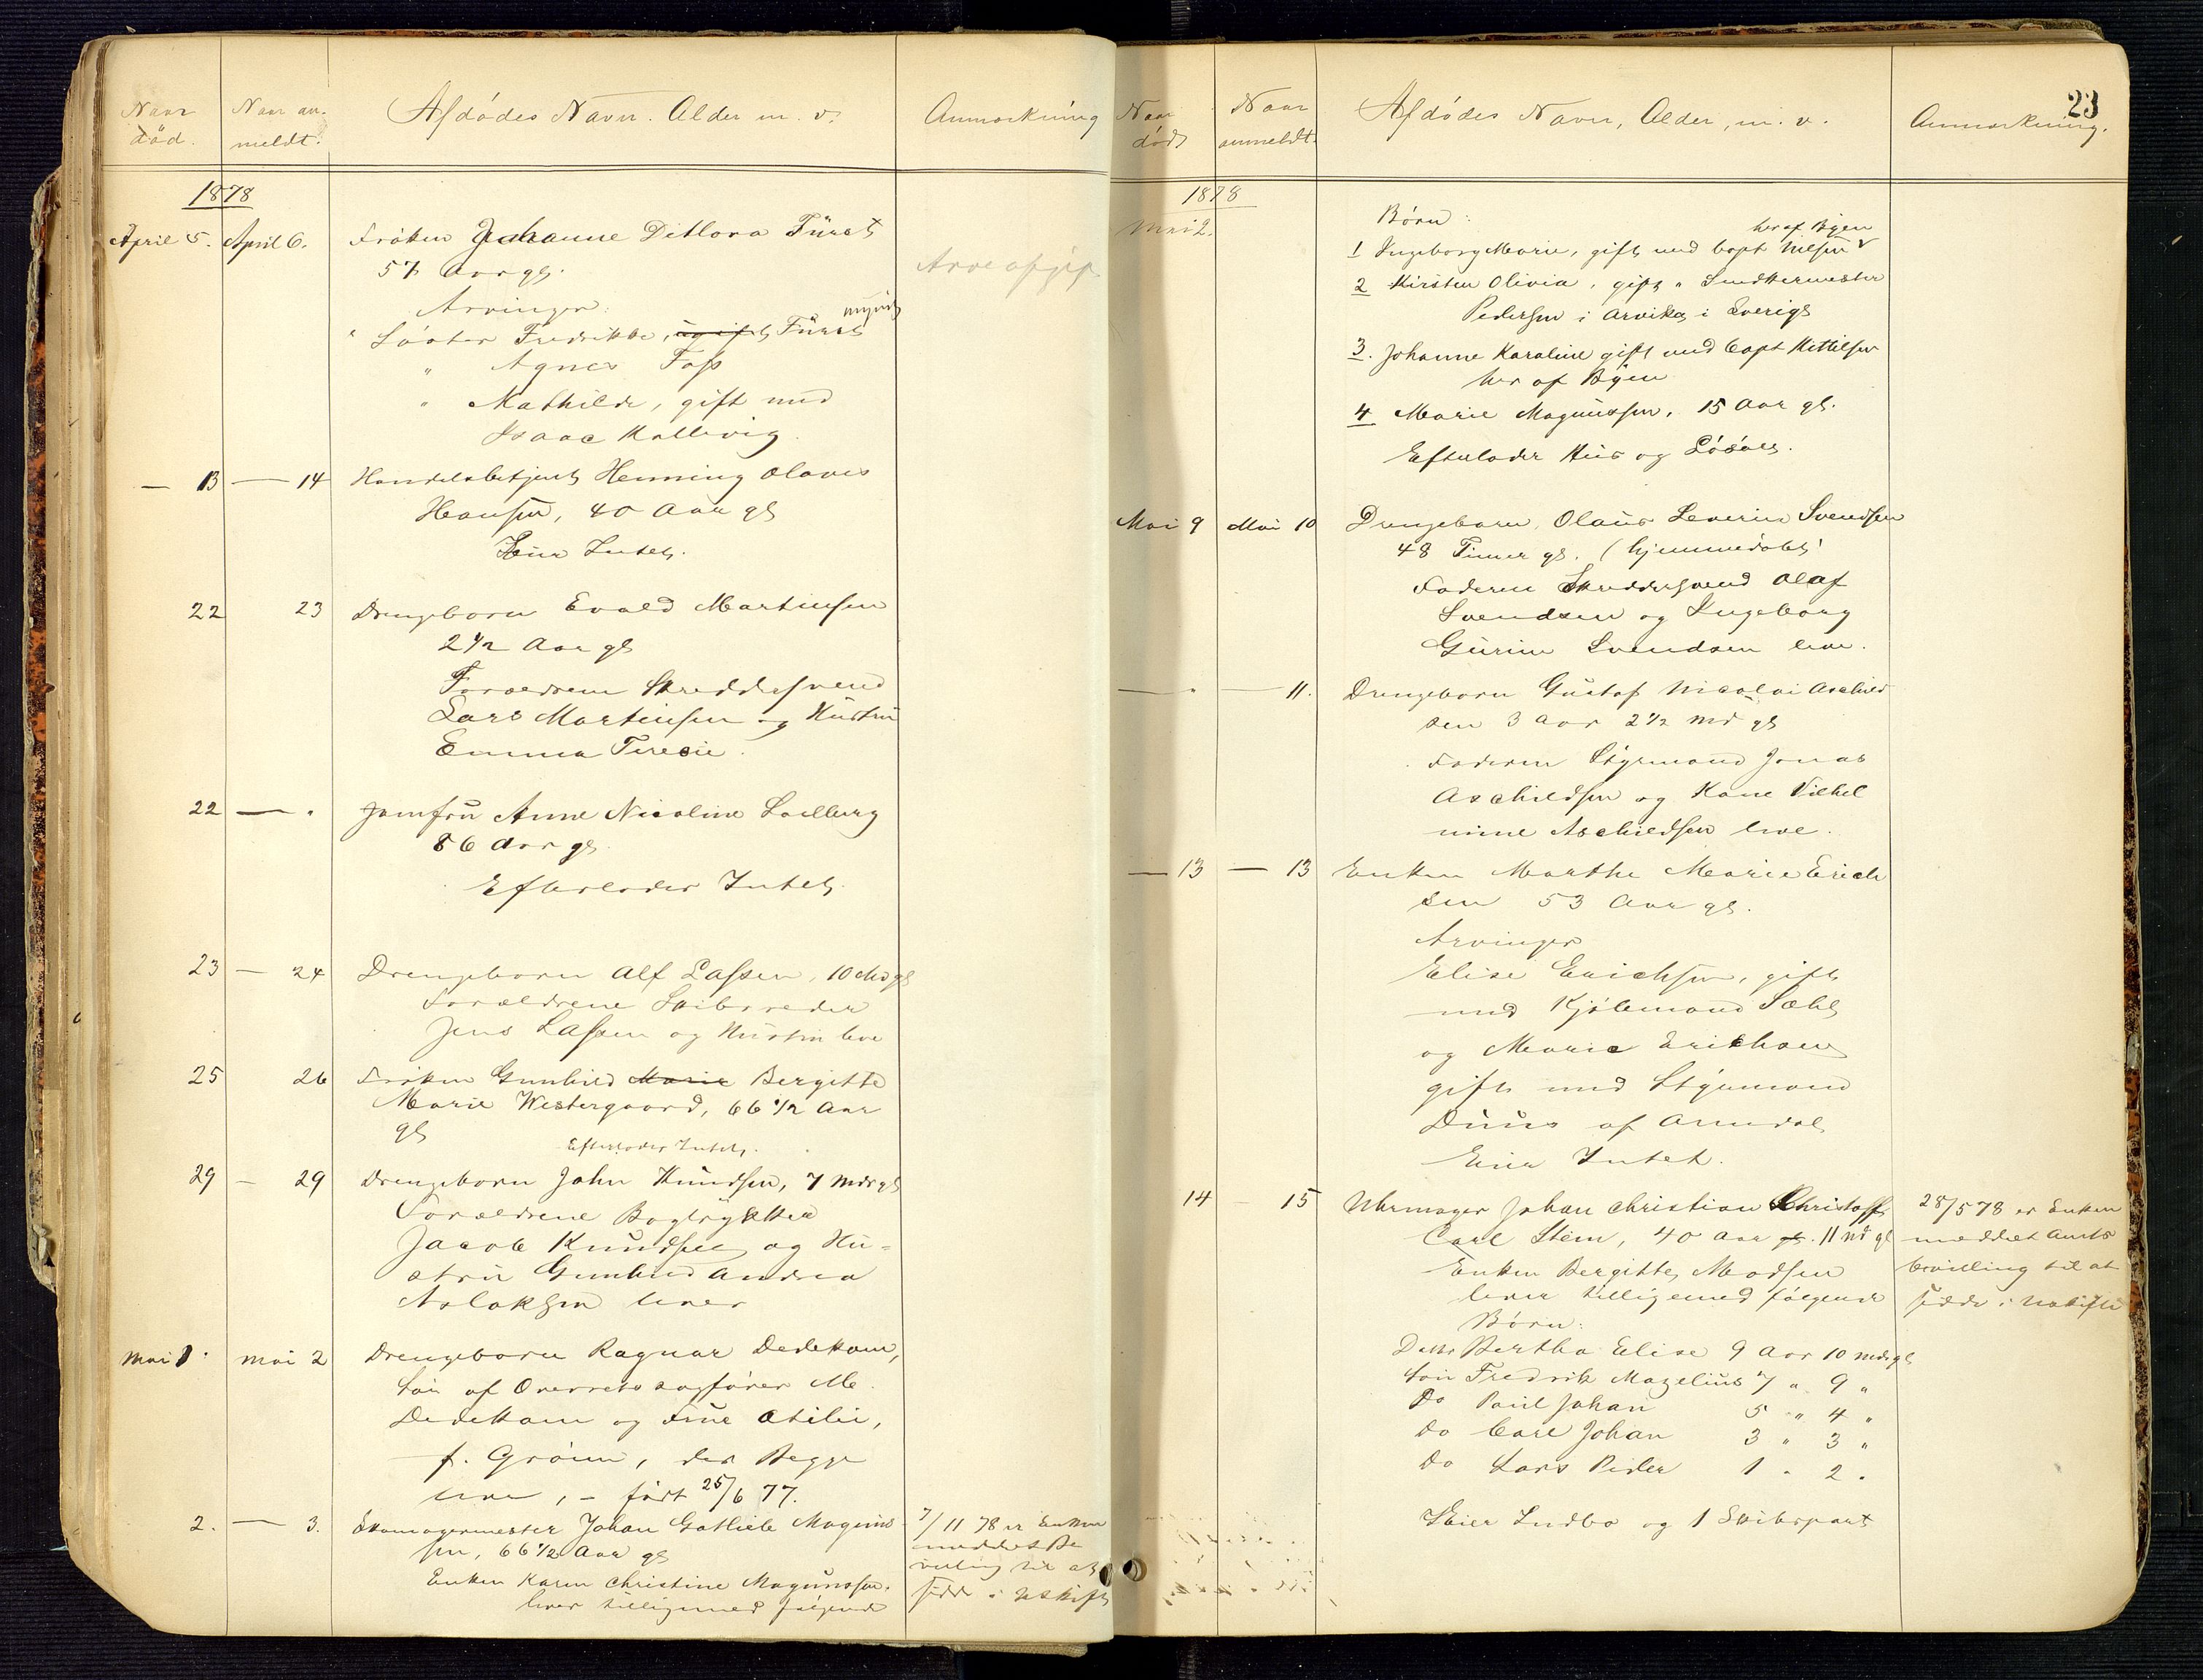 Naar død. Naar an-meldt. Afdødes Navn. Alder m. v. Anmærkning
1878
April 5. April 6. Frøken Johanne Ditlova Fürst
57 Aar gl.
Arveafgift
Arvinger:
" Søster Fredrikke, ugift Fürst myndig
" Agnes Foss
" Mathilde, gift med
Isaac Kallevig
— 13 — 14 Handelsbetjent Henning Olaves
Hansen, 40 Aar gl
Eier Intet.
22 23 Drengebarn Evald Martinsen
2 1/2 Aar gl
Forældrene Skreddersvend
Lars Martinsen og Hustru
Emma Teresie.
22 — " Jomfru Anne Nicoline
86 Aar gl.
Efterlader Intet.
23 — 24 Drengebarn Alf Lassen, 10 Md gl
Forældrene Skibsreder
Jens Lassen og Hustru leve
25 26 Frøken Gunhild Marie Bergitte
Marie Westergaard, 66 1/2 Aar
gl
Efterlader Intet.
29 — 29 Drengebarn John Knudsen, 7 Mdr gl
Forældrene Bogtrykker
Jacob Knudsen og Hu-
stru Gunhild Andrea
Aslaksen lever
Mai 1. Mai 2 Drengebarn Ragnar Dedekam,
Søn af Overretssagfører
Dedekam og Frue Otilie,
f. Grøun, der Begge
leve, – født 25/6 77.
2. — 3. Skomagermester Johan Gotlieb Magnus-
sen, 66 1/2 Aar gl
Enken Karen Christine Magnussen.
lever tilligemed følgende
7/11 78 er Enken
meddelt Be
villing til at
sidde i Uskift
Naar død Naar anmeldt. Afdødes Navn, Alder, m. v. Anmærkning.
23
1878
Mai 2. Børn:
1 Ingeborg Marie, gift med Capt Nilsen her af Byen
2 Kirsten Olivia, gift "
Pedersen i Arvika i Sverige
3. Johanne Karoline gift med Capt Kittilsen
her af Byen
4 Marie Magnussen, 15 Aar gl.
Efterlader Hus og Løsøre.
Mai 9 Mai 10 Drengebarn Olaus Severin Svendsen
48 Timer gl. (hjemmedøbt)
Faderen Skreddersvend Olaf
Svendsen og Ingeborg
Gurine Svendsen leve.
— " — 11. Drengebarn Gustaf Nicolai Aschild
sen 3 Aar 2 1/2 Md gl
Faderen Styrmand Jonas
Aschildsen og Kone Vilhel
mine Aschildsen leve.
— 13 — 13 Enken Marthe Marie Erich
sen 53 Aar gl.
Arvinger
Elise Erichsen, gift
med Kjøbmand
og Marie Erichsen
gift med Styrmand
Duus af Arendal
Eier Intet.
14 — 15 Uhrmager Johan Christian Christoff
Carl Stein, 40 Aar gl. 11 Md gl
Enken Bergitte Madsen
lever tilligemed følgende
Børn:
Datter Bertha Elise 9 Aar 10 Mdr gl
Søn Fredrik Mazelius 7 " 9 "
Do Paul Johan 5 " 4 "
Do Carl Johan 3 " 3 "
Do Lars Peder 1 " 2 "
Eier Indbo og 1 Skibspart
28/5 78 er Enken
meddelt Amts
bevilling til at
sidde i Uskifte